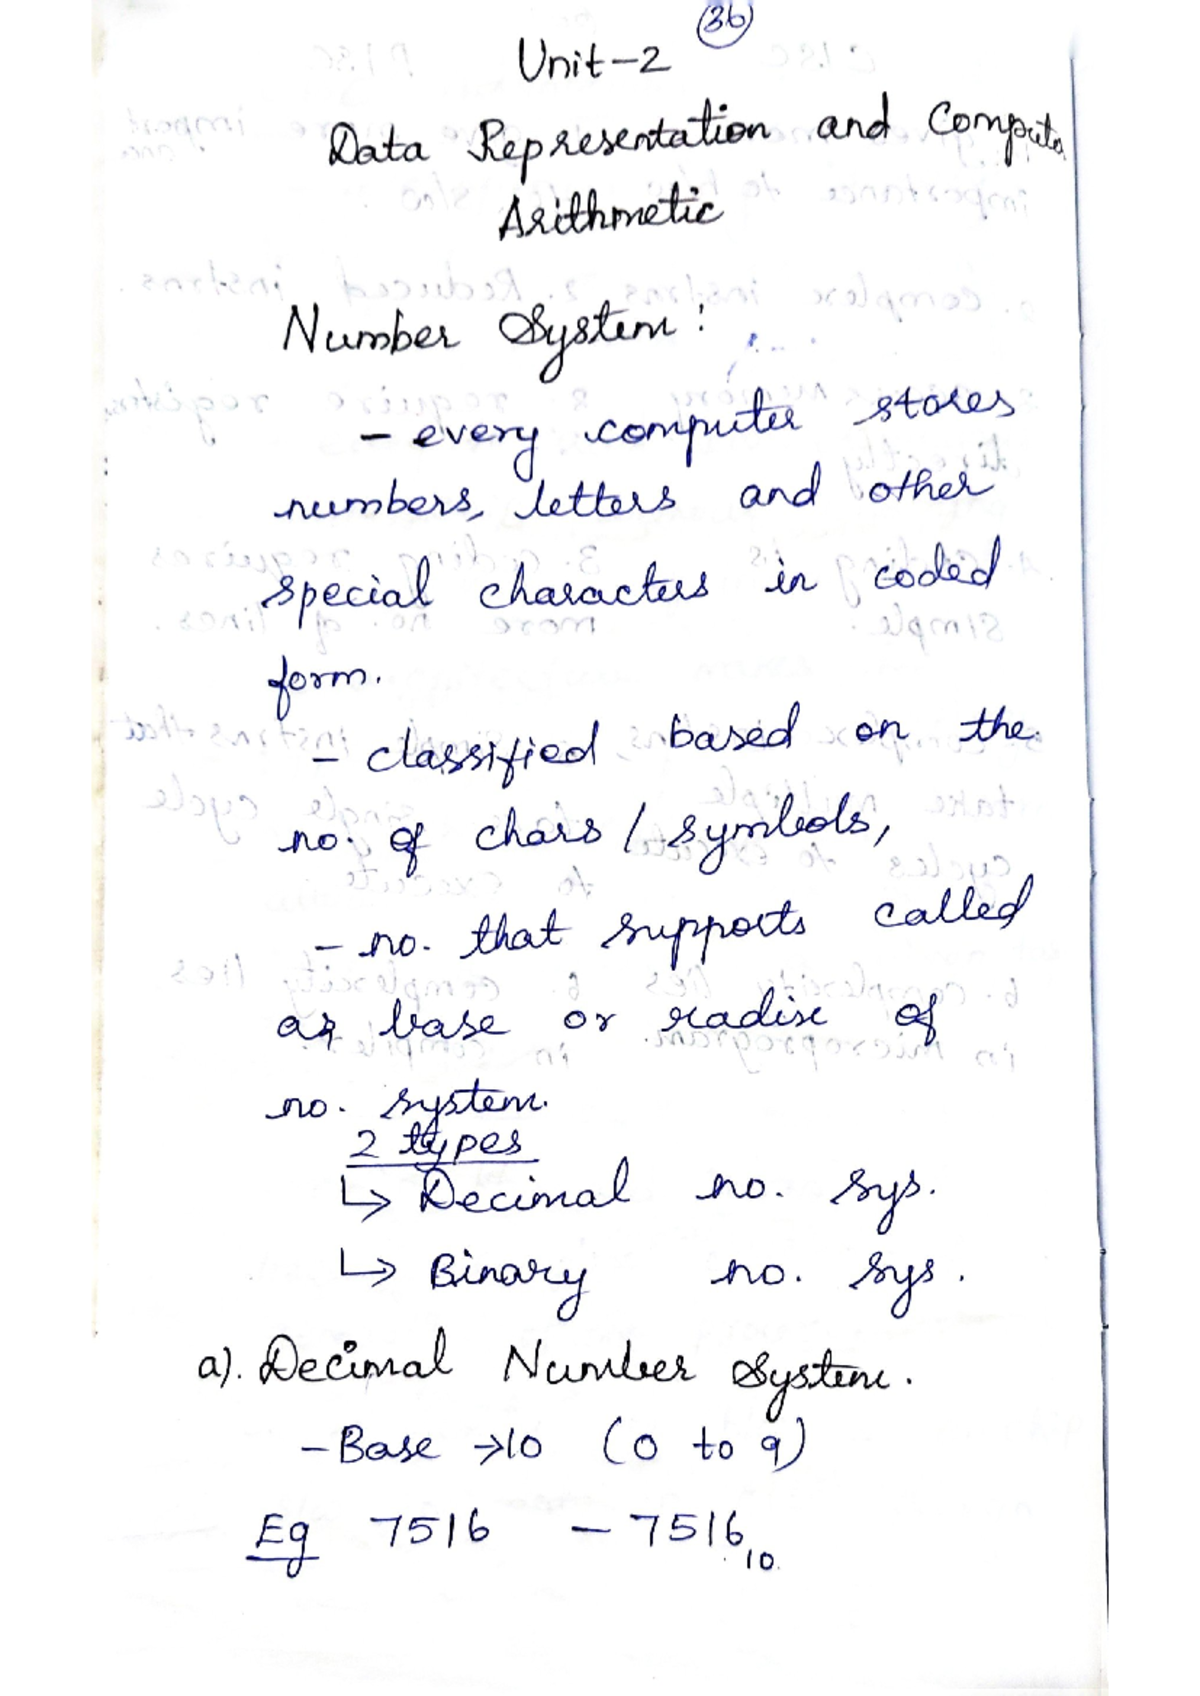 36
Unit-2
Data Representation and Computer
Arithmetic
Number System:
- every computer stores
numbers, letters and other
special characters in coded
form.
- classified based on the
no. of chars / symbols,
- no. that supports called
as base or radix of
no. system.
2 types
↳ Decimal no. sys.
↳ Binary no. sys.
a). Decimal Number System.
- Base → 10 (0 to 9)
Eg 7516 - 7516₁₀